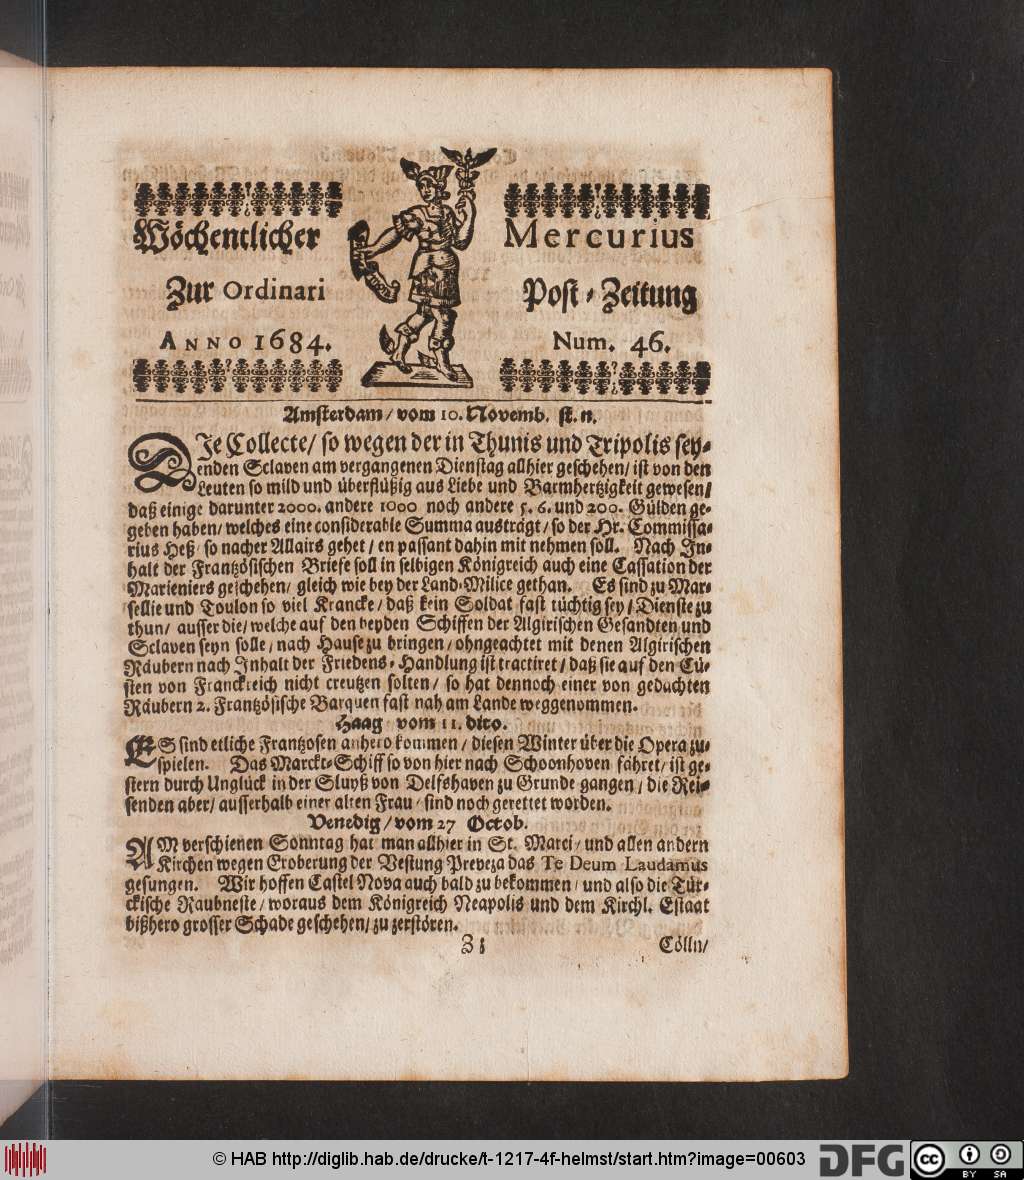 Wöchentlicher Mercurius
Zur Ordinari Post-Zeitung
ANNO 1684. Num. 46.
Amsterdam / vom 10. Novemb. st. n.
DJe Collecte / so wegen der in Thunis und Tripolis sey-
enden Sclaven am vergangenen Dienstag allhier geschehen / ist von den
Leuten so mild und überflüßig aus Liebe und Barmhertzigkeit gewesen /
daß einige darunter 2000. andere 1000 noch andere 5. 6. und 200. Gülden ge-
geben haben / welches eine considerable Summa austrägt / so der Hr. Commissa-
rius Heß / so nacher Allairs gehet / en passant dahin mit nehmen soll. Nach Jn-
halt der Frantzösischen Briefe soll in selbigen Königreich auch eine Cassation der
Marieniers geschehen / gleich wie bey der Land-Milice gethan. Es sind zu Mar-
sellie und Toulon so viel Krancke / daß kein Soldat fast tüchtig sey / Dienste zu
thun / ausser die / welche auf den beyden Schiffen der Algirischen Gesandten und
Sclaven seyn solle / nach Hause zu bringen / ohngeachtet mit denen Algirischen
Räubern nach Jnhalt der Friedens-Handlung ist tractiret / daß sie auf den Cü-
sten von Franckreich nicht creutzen solten / so hat dennoch einer von gedachten
Räubern 2. Frantzösische Barquen fast nah am Lande weggenommen.
Haag vom 11. dito.
ES sind etliche Frantzosen anhero kommen / diesen Winter über die Opera zu-
spielen. Das Marckt-Schiff so von hier nach Schoonhoven fähret / ist ge-
stern durch Unglück in der Sluyß von Delfshaven zu Grunde gangen / die Rei-
senden aber / ausserhalb einer alten Frau / sind noch gerettet worden.
Venedig / vom 27 Octob.
AM verschienen Sonntag hat man allhier in St. Marci / und allen andern
Kirchen wegen Eroberung der Vestung Preveza das Te Deum Laudamus
gesungen. Wir hoffen Castel Nova auch bald zu bekommen / und also die Tür-
ckische Raubneste / woraus dem Königreich Neapolis und dem Kirchl. Estaat
bißhero grosser Schade geschehen / zu zerstören.
Cölln /
© HAB http://diglib.hab.de/drucke/t-1217-4f-helmst/start.htm?image=00603
DFG
CC BY SA